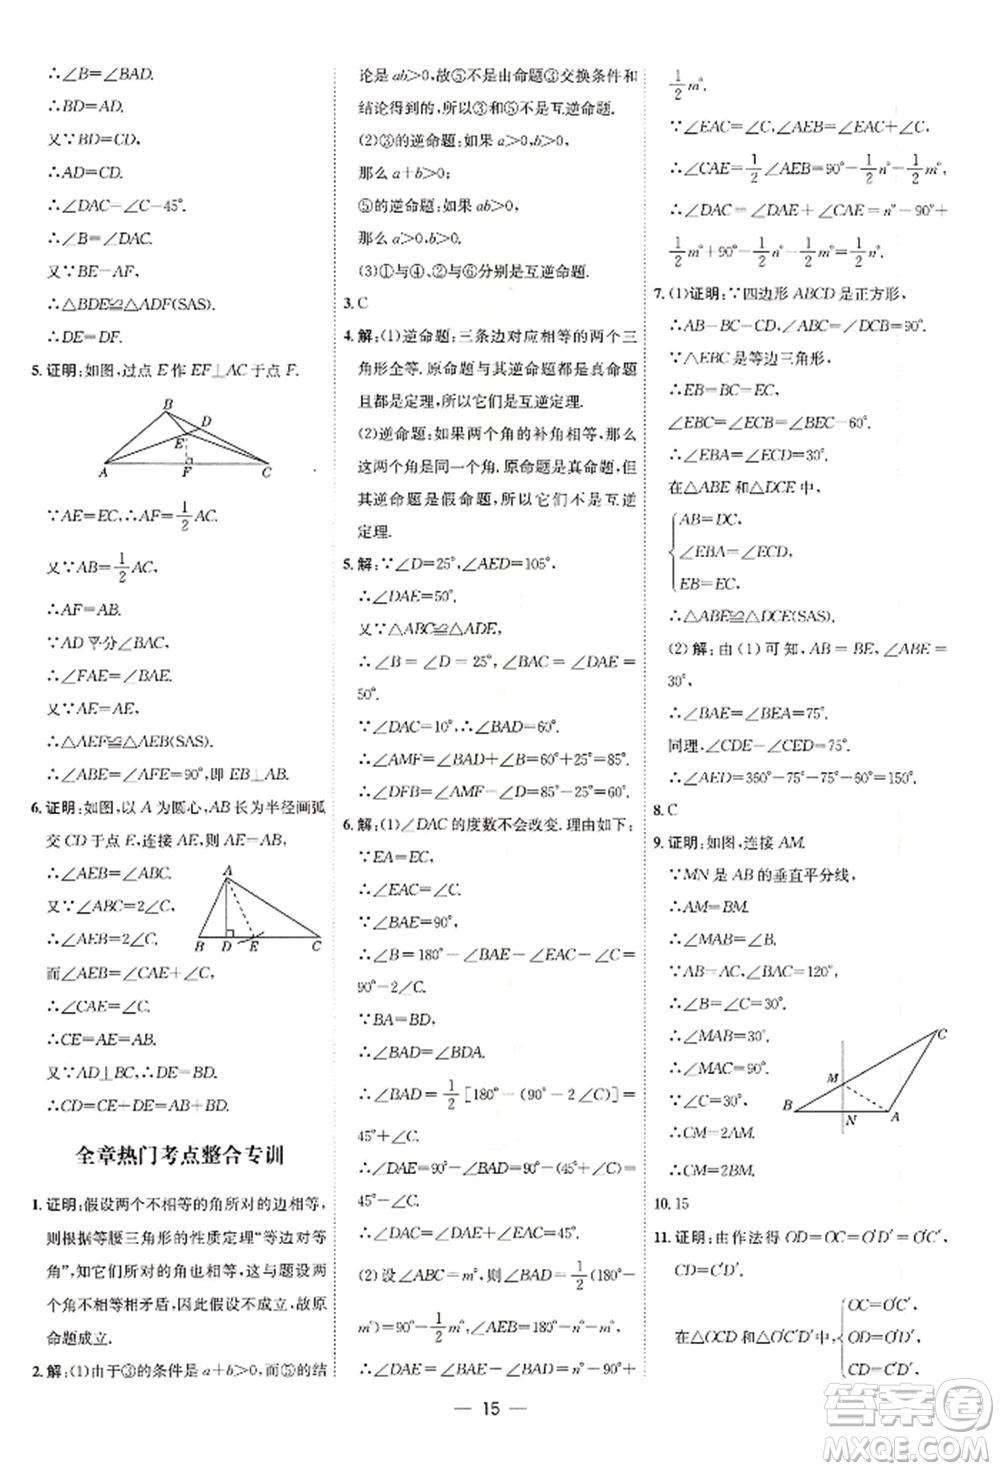 ∴∠B=∠BAD.
∴BD=AD.
又∵BD=CD,
∴AD=CD.
∴∠DAC=∠C=45°.
∴∠B=∠DAC.
又∵BE=AF,
∴△BDE≌△ADF(SAS).
∴DE=DF.
5. 证明:如图,过点 E 作 EF⊥AC 于点 F.
B
D
E
A
F
C
∵AE=EC,∴AF=1/2AC.
又∵AB=1/2AC,
∴AF=AB.
∵AD 平分∠BAC,
∴∠FAE=∠BAE.
又∵AE=AE,
∴△AEF≌△AEB(SAS).
∴∠ABE=∠AFE=90°,即 EB⊥AB.
6. 证明:如图,以 A 为圆心,AB 长为半径画弧
交 CD 于点 E,连接 AE,则 AE=AB.
∴∠AEB=∠ABC.
又∵∠ABC=2∠C,
∴∠AEB=2∠C.
而∠AEB=∠CAE+∠C,
∴∠CAE=∠C.
∴CE=AE=AB.
又∵AD⊥BC,∴BD=DE.
∴CD=CE+DE=AB+BD.
A
B
D
E
C
全章热门考点整合专训
1. 证明:假设两个不相等的角所对的边相等,
则根据等腰三角形的性质定理“等边对等
角”,知它们所对的角也相等,这与题设两
个角不相等相矛盾,因此假设不成立,故原
命题成立.
2. 解:(1)由于③的条件是 a+b>0,而⑤的结
论是 ab>0,故⑤不是由命题③交换条件和
结论得到的,所以③和⑤不是互逆命题.
(2)③的逆命题:如果 a>0,b>0,
那么 a+b>0;
⑤的逆命题:如果 ab>0,
那么 a>0,b>0.
(3)①与④、②与⑥分别是互逆命题.
3. C
4. 解:(1)逆命题:三条边对应相等的两个三
角形全等.原命题与其逆命题都是真命题
且都是定理,所以它们是互逆定理.
(2)逆命题:如果两个角的补角相等,那么
这两个角是同一个角.原命题是真命题,但
其逆命题是假命题,所以它们不是互逆
定理.
5. 解:∵∠D=25°,∠AED=105°,
∴∠DAE=50°.
又∵△ABC≌△ADE,
∴∠B=∠D=25°,∠BAC=∠DAE=
50°.
∵∠DAC=10°,∴∠BAD=60°.
∴∠AMF=∠BAD+∠B=60°+25°=85°.
∴∠DFB=∠AMF-∠D=85°-25°=60°.
6. 解:(1)∠DAC 的度数不会改变.理由如下:
∵EA=EC,
∴∠EAC=∠C.
∵∠BAE=90°,
∴∠B=180°-∠BAE-∠EAC-∠C=
90°-2∠C.
∵BA=BD,
∴∠BAD=∠BDA.
∴∠BAD=1/2[180°-(90°-2∠C)]=
45°+∠C.
∴∠DAE=90°-∠BAD=90°-(45°+
∠C)=45°-∠C.
∴∠DAC=∠DAE+∠EAC=45°.
(2)设∠ABC=m°,则∠BAD=1/2(180°-
m°)=90°-1/2m°,∠AEB=180°-n°-m°.
∴∠DAE=∠BAE-∠BAD=n°-90°+
1/2m°.
∵∠EAC=∠C,∠AEB=∠EAC+∠C,
∴∠CAE=1/2∠AEB=90°-1/2n°-1/2m°.
∴∠DAC=∠DAE+∠CAE=n°-90°+
1/2m°+90°-1/2n°-1/2m°=1/2n°.
7. (1)证明:∵四边形 ABCD 是正方形,
∴AB=BC=CD,∠ABC=∠DCB=90°.
∵△EBC 是等边三角形,
∴EB=BC=EC,
∠EBC=∠ECB=∠BEC=60°.
∴∠EBA=∠ECD=30°.
在△ABE 和△DCE 中,
AB=DC,
∠EBA=∠ECD,
EB=EC,
∴△ABE≌△DCE(SAS).
(2)解:由(1)可知,AB=BE,∠ABE=
30°,
∴∠BAE=∠BEA=75°.
同理,∠CDE=∠CED=75°.
∴∠AED=360°-75°-75°-60°=150°.
8. C
9. 证明:如图,连接 AM.
∵MN 是 AB 的垂直平分线,
∴AM=BM.
∴∠MAB=∠B.
∵AB=AC,∠BAC=120°,
∴∠B=∠C=30°.
∴∠MAB=30°.
∴∠MAC=90°.
∵∠C=30°,
∴CM=2AM.
∴CM=2BM.
C
M
B
N
A
10. 15
11. 证明:由作法得 OD=OC=O′D′=O′C′,
CD=C′D′.
在△OCD 和△O′C′D′中,
OC=O′C′,
OD=O′D′,
CD=C′D′,
— 15 —
答案圈
MXQE.COM